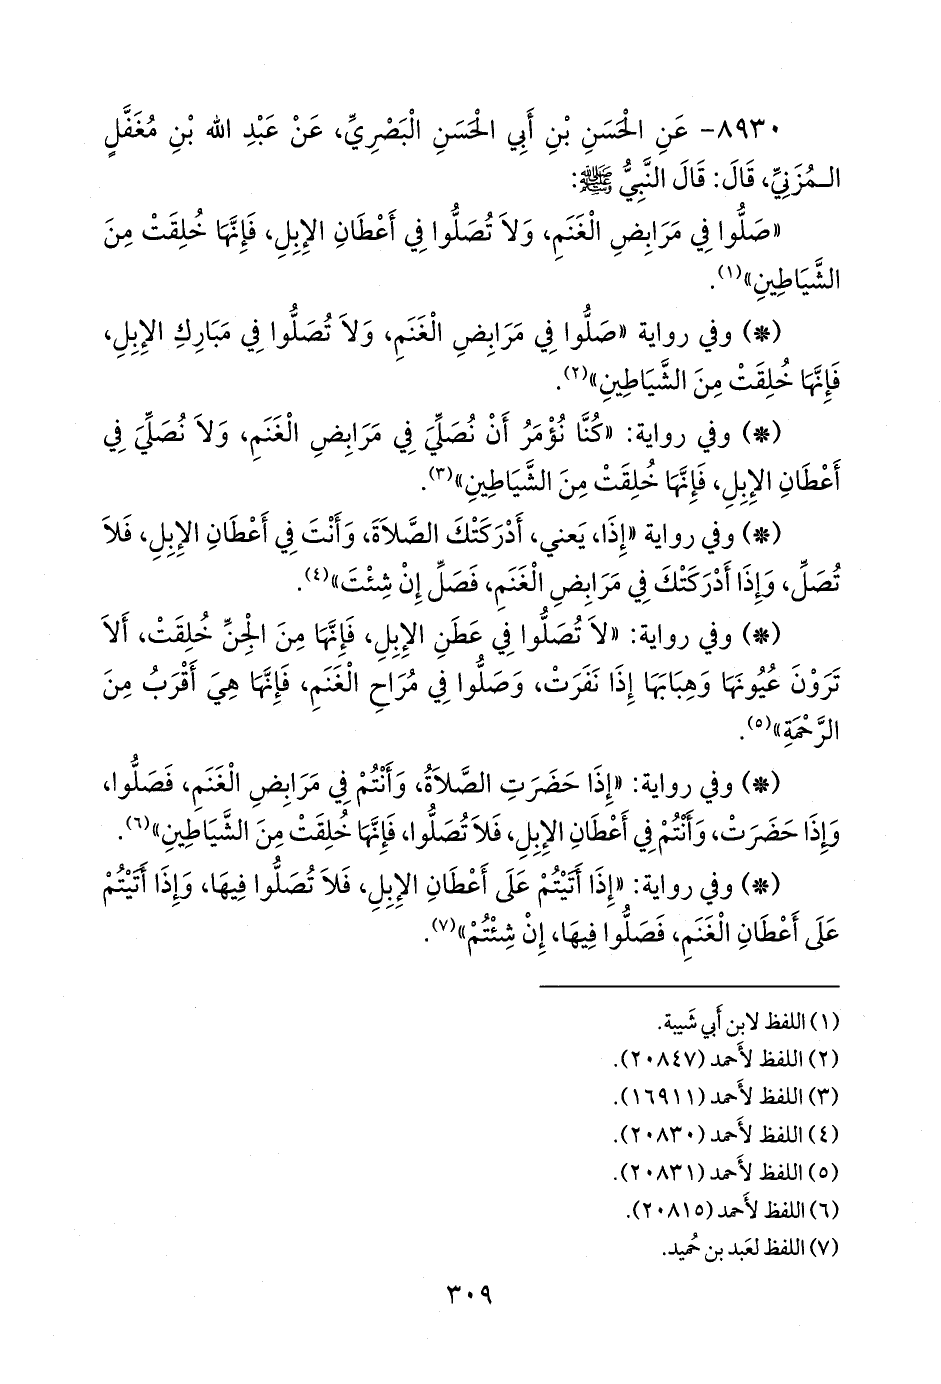 ٨٩٣٠- عَنِ الْحَسَنِ بْنِ أَبِي الْحَسَنِ الْبَصْرِيِّ، عَنْ عَبْدِ الله بْنِ مُغَفَّلٍ
الـمُزَنِيِّ، قَالَ: قَالَ النَّبِيُّ ﷺ:
«صَلُّوا فِي مَرَابِضِ الْغَنَمِ، وَلاَ تُصَلُّوا فِي أَعْطَانِ الإِبِلِ، فَإِنَّهَا خُلِقَتْ مِنَ
الشَّيَاطِينِ»(١).
(*) وفي رواية «صَلُّوا فِي مَرَابِضِ الْغَنَمِ، وَلاَ تُصَلُّوا فِي مَبَارِكِ الإِبِلِ،
فَإِنَّهَا خُلِقَتْ مِنَ الشَّيَاطِينِ»(٢).
(*) وفي رواية: «كُنَّا نُؤْمَرُ أَنْ نُصَلِّيَ فِي مَرَابِضِ الْغَنَمِ، وَلاَ نُصَلِّيَ فِي
أَعْطَانِ الإِبِلِ، فَإِنَّهَا خُلِقَتْ مِنَ الشَّيَاطِينِ»(٣).
(*) وفي رواية «إِذَا، يَعني، أَدْرَكَتْكَ الصَّلاَةَ، وَأَنْتَ فِي أَعْطَانِ الإِبِلِ، فَلاَ
تُصَلِّ، وَإِذَا أَدْرَكَتْكَ فِي مَرَابِضِ الْغَنَمِ، فَصَلِّ إِنْ شِئْتَ»(٤).
(*) وفي رواية: «لاَ تُصَلُّوا فِي عَطَنِ الإِبِلِ، فَإِنَّهَا مِنَ الْجِنِّ خُلِقَتْ، أَلاَ
تَرَوْنَ عُيُونَهَا وَهِبَابَهَا إِذَا نَفَرَتْ، وَصَلُّوا فِي مُرَاحِ الْغَنَمِ، فَإِنَّهَا هِيَ أَقْرَبُ مِنَ
الرَّحْمَةِ»(٥).
(*) وفي رواية: «إِذَا حَضَرَتِ الصَّلاَةُ، وَأَنْتُمْ فِي مَرَابِضِ الْغَنَمِ، فَصَلُّوا،
وَإِذَا حَضَرَتْ، وَأَنْتُمْ فِي أَعْطَانِ الإِبِلِ، فَلاَ تُصَلُّوا، فَإِنَّهَا خُلِقَتْ مِنَ الشَّيَاطِينِ»(٦).
(*) وفي رواية: «إِذَا أَتَيْتُمْ عَلَى أَعْطَانِ الإِبِلِ، فَلاَ تُصَلُّوا فِيهَا، وَإِذَا أَتَيْتُمْ
عَلَى أَعْطَانِ الْغَنَمِ، فَصَلُّوا فِيهَا، إِنْ شِئْتُمْ»(٧).
(١) اللفظ لابن أَبي شَيبة.
(٢) اللفظ لأَحمد (٢٠٨٤٧).
(٣) اللفظ لأَحمد (١٦٩١١).
(٤) اللفظ لأَحمد (٢٠٨٣٠).
(٥) اللفظ لأَحمد (٢٠٨٣١).
(٦) اللفظ لأَحمد (٢٠٨١٥).
(٧) اللفظ لعَبد بن حُميد.
٣٠٩